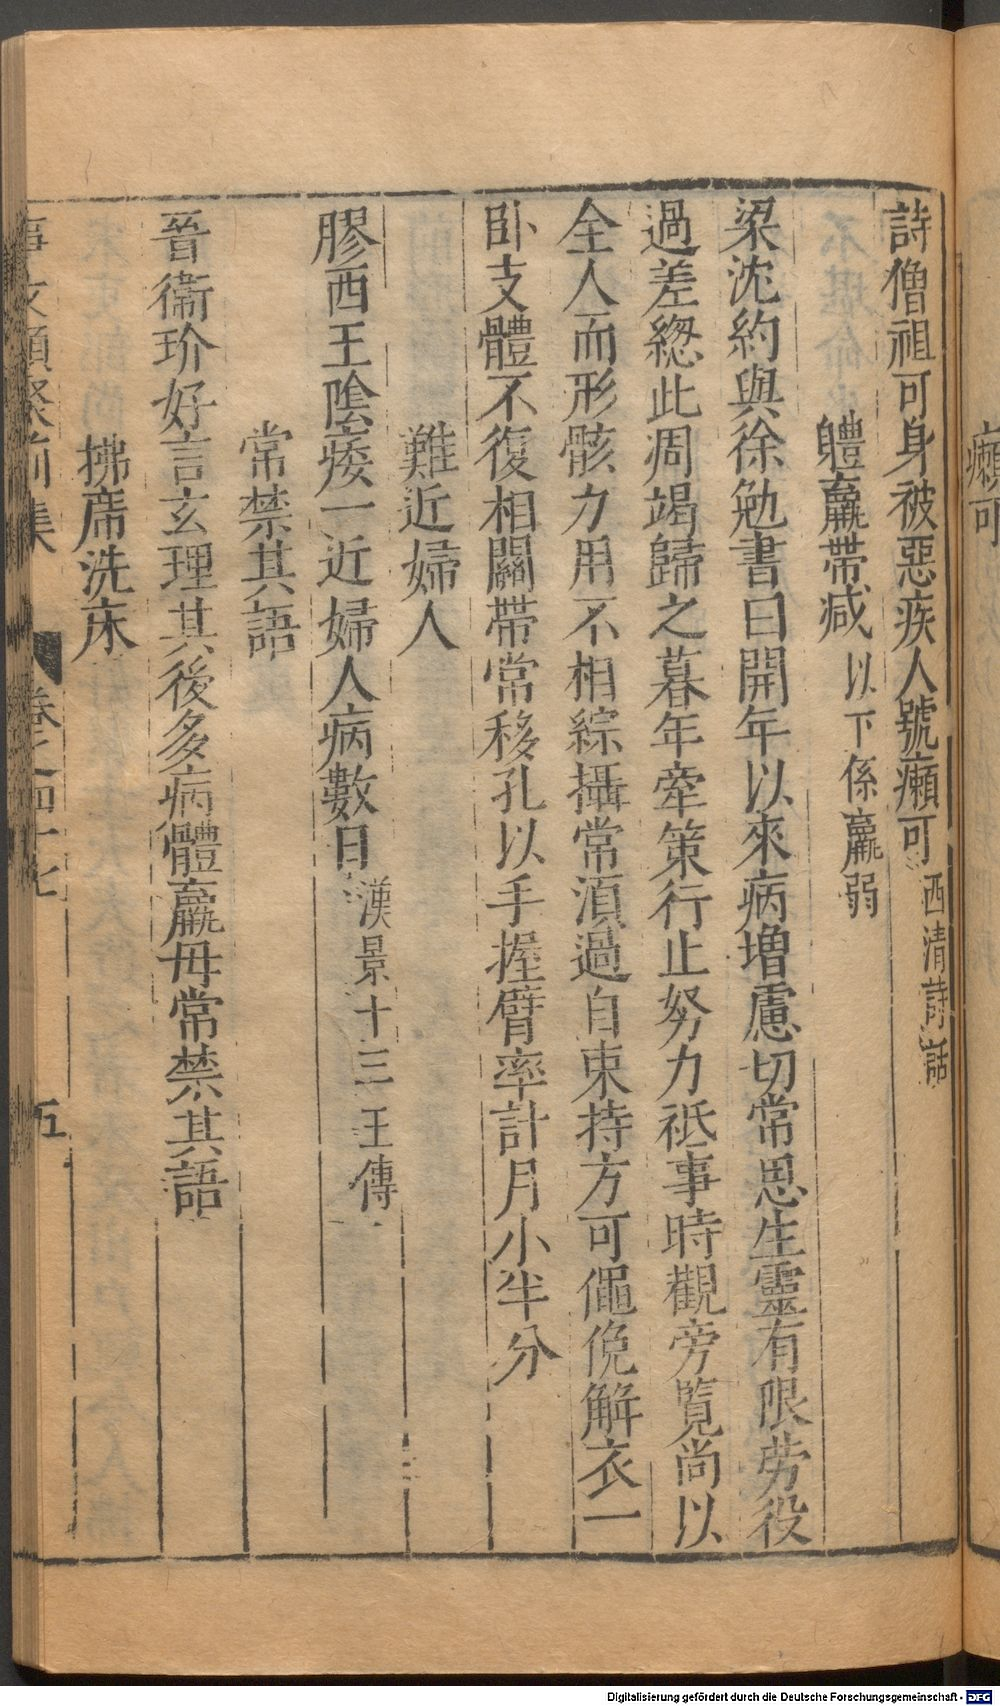 癩可
詩僧祖可身被惡疾人號癩可西清詩話
體羸帶减以下係羸弱
梁沈約與徐勉書曰開年以來病增慮切常思生靈有限勞役
過差緫此凋竭歸之暮年牽策行止努力祗事時觀旁覧尚以
全人而形骸力用不相綜攝常湏過自束持方可僶俛解衣一
卧支體不復相關帶常移孔以手握臂率計月小半分
難近婦人
膠西王陰痿一近婦人病數日漢景十三王傳
常禁其語
晉衞玠好言玄理其後多病體羸母常禁其語
拂席洗床
事文類聚前集 卷之四十七 五
Digitalisierung gefördert durch die Deutsche Forschungsgemeinschaft - DFG